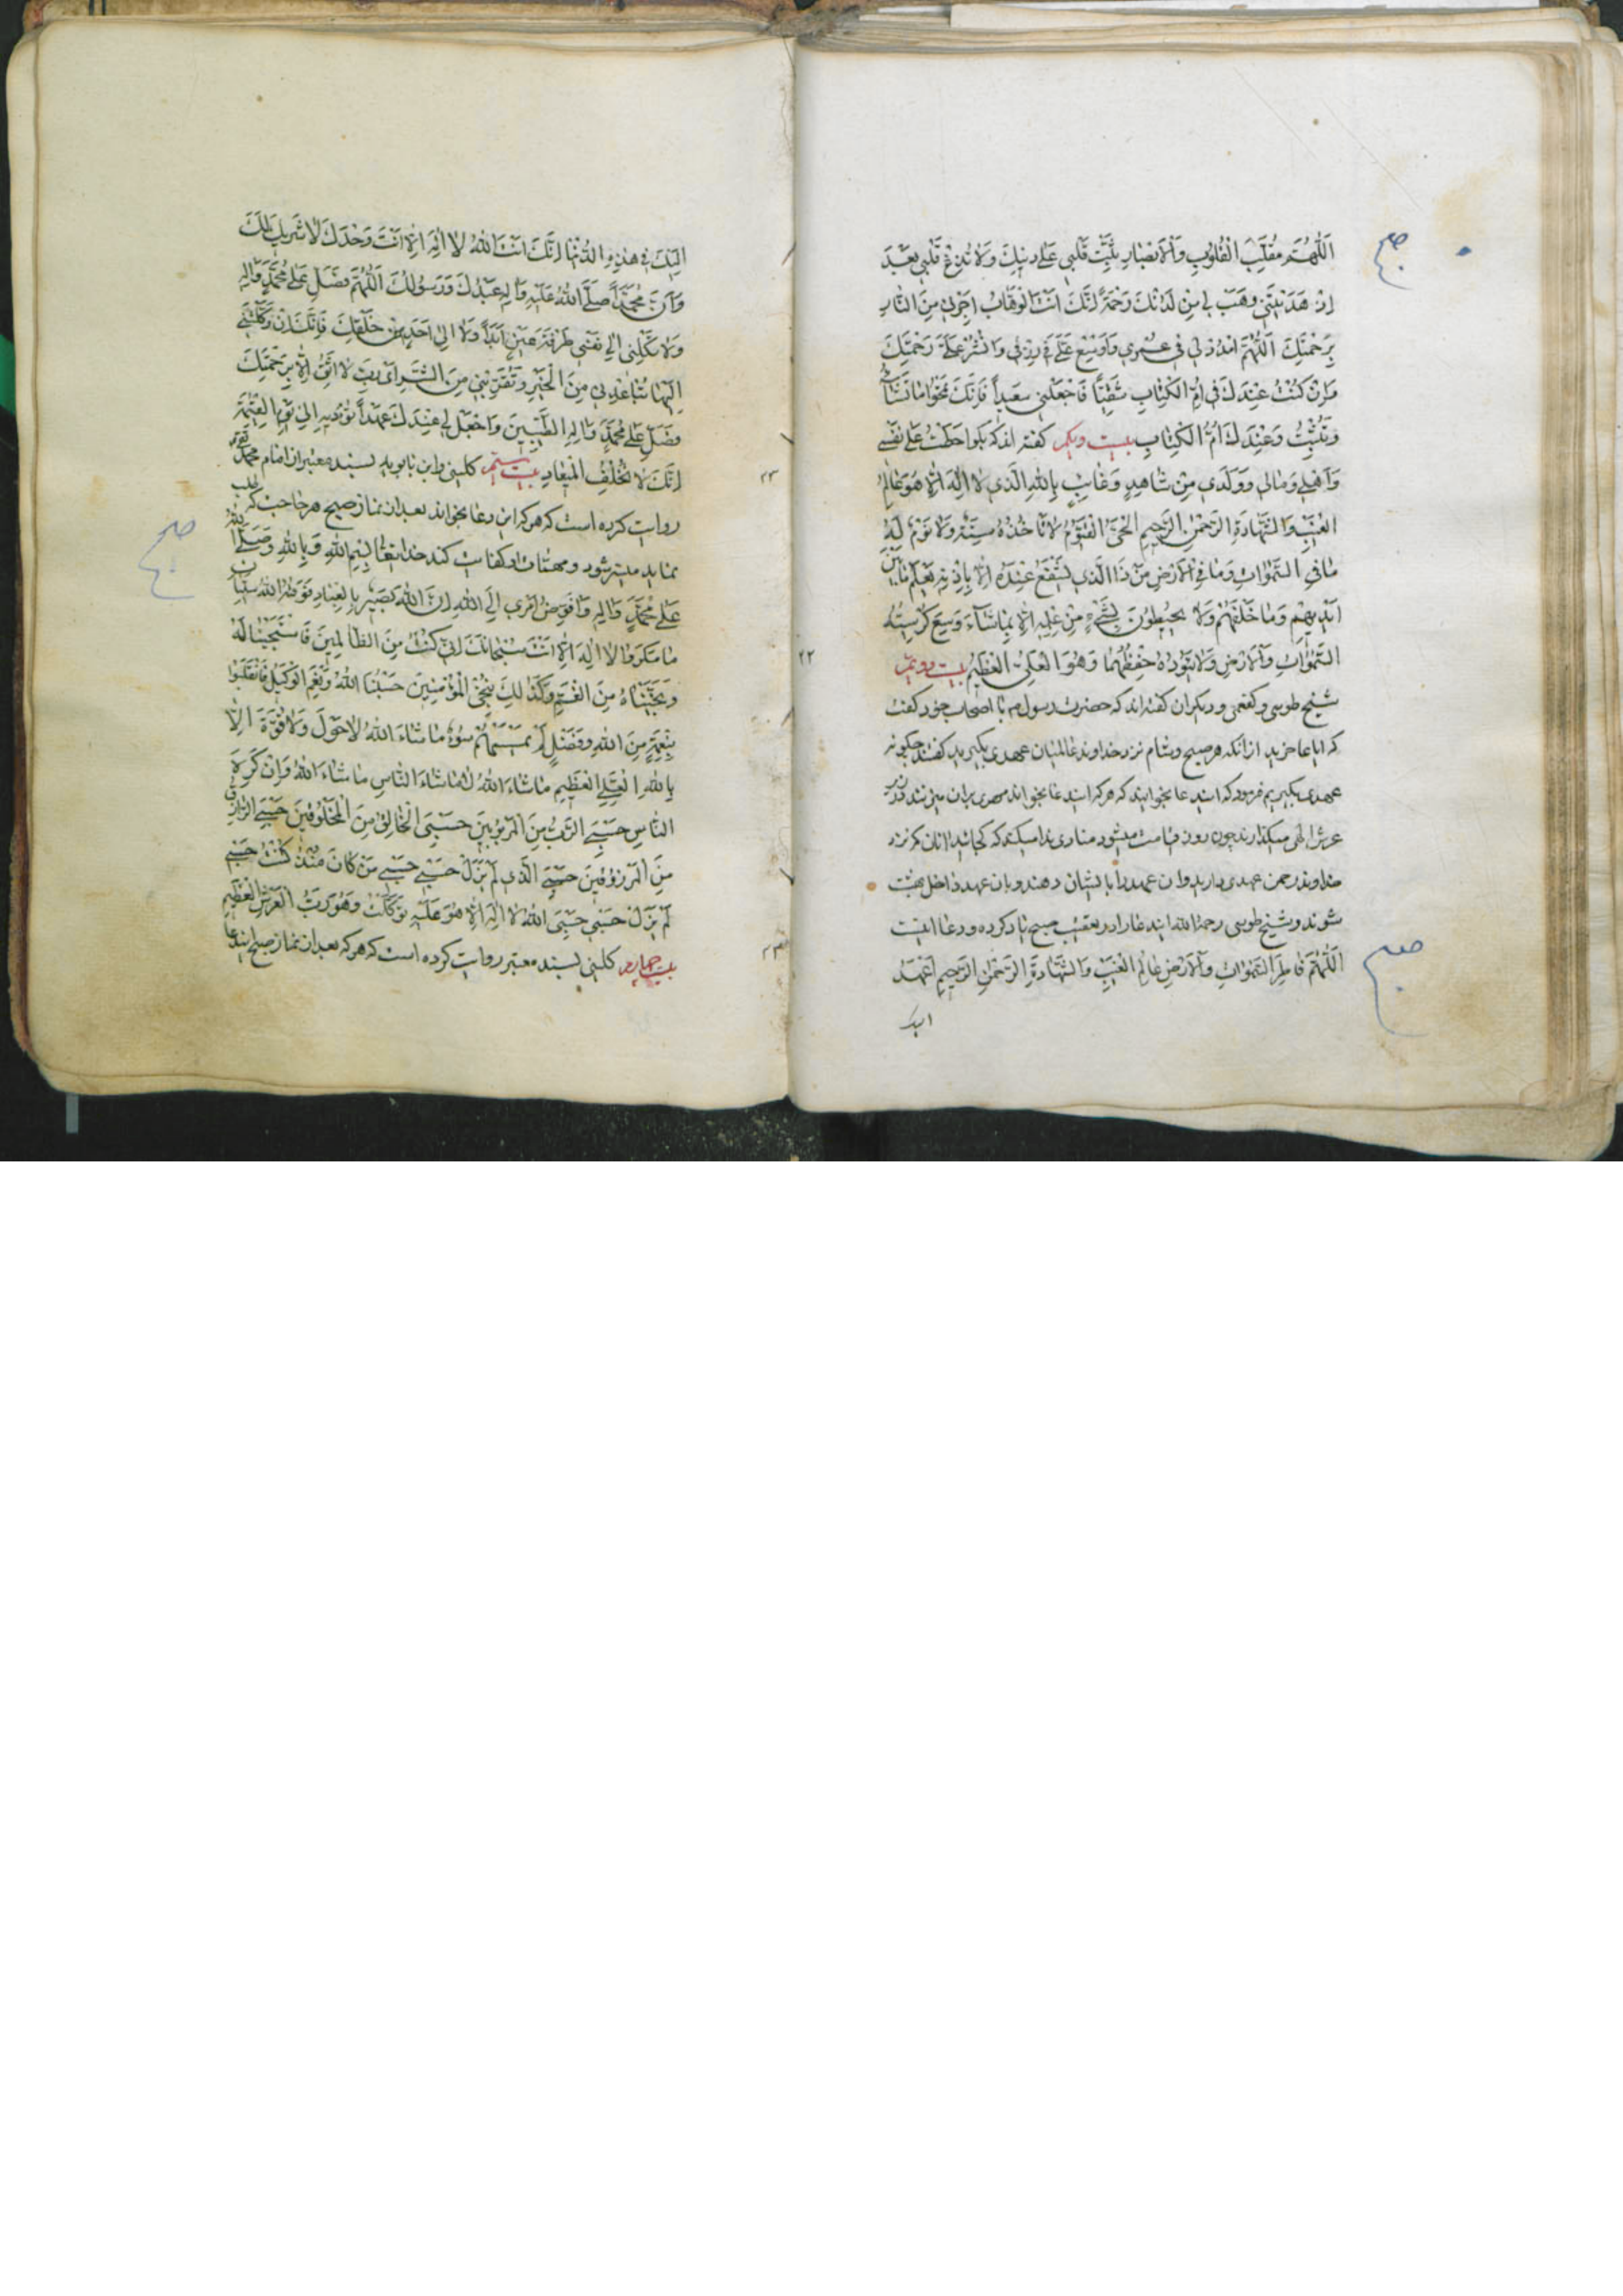 اَللّهُمَّ مُقَلِّبَ الْقُلُوبِ وَالْاَبْصَارِ ثَبِّتْ قَلْبِي عَلى دِينِكَ وَلا تُزِغْ قَلْبِي بَعْدَ
اِذْ هَدَيْتَنِي وَهَبْ لِي مِنْ لَدُنْكَ رَحْمَةً اِنَّكَ اَنْتَ الْوَهّابُ اَجِرْنِي مِنَ النّارِ
بِرَحْمَتِكَ اَللّهُمَّ امْدُدْ لِي فِي عُمْرِي وَاَوْسِعْ عَلَيَّ فِي رِزْقِي وَانْشُرْ عَلَيَّ رَحْمَتَكَ
وَاِنْ كُنْتُ عِنْدَكَ فِي اُمِّ الْكِتابِ شَقِيّاً فَاجْعَلْنِي سَعِيداً فَاِنَّكَ تَمْحُوا ما تَشآءُ
وَتُثْبِتُ وَعِنْدَكَ اُمُّ الْكِتابِ بیست ویکم گفته اند که بگو احَطْتُ عَلى نَفْسِي
وَاَهْلِي وَمالِي وَوَلَدِي مِنْ شاهِدٍ وَغائِبٍ بِاللهِ الَّذِي لا اِلهَ اِلّا هُوَ عالِمُ
الْغَيْبِ وَالشَّهادَةِ الرَّحْمنِ الرَّحِيمِ الْحَيُّ الْقَيُّومُ لا تَاْخُذُهُ سِنَةٌ وَلا نَوْمٌ لَهُ
ما فِي السَّمواتِ وَما فِي الْاَرْضِ مَنْ ذَا الَّذِي يَشْفَعُ عِنْدَهُ اِلّا بِاِذْنِهِ يَعْلَمُ ما بَيْنَ
اَيْدِيهِمْ وَما خَلْفَهُمْ وَلا يُحِيطُونَ بِشَيْءٍ مِنْ عِلْمِهِ اِلّا بِما شآءَ وَسِعَ كُرْسِيُّهُ
السَّمواتِ وَالْاَرْضَ وَلا يَؤُدُهُ حِفْظُهُما وَهُوَ الْعَلِيُّ الْعَظِيمُ بیست دویم
۲۲
شیخ طوسی و کفعمی و دیگران گفته اند که حضرت رسول ص با اصحاب خود گفت
که ایا عاجزید از انکه هر صبح و شام نزد خداوند عالمیان عهدی بگیرید گفتند چگونه
عهدی بگیریم فرمود که ایندعا بخوانید که هر که ایندعا بخواند مهری بران میزنند و در زیر
عرش الهی میگذارند چون روز قیامت میشود منادی ندا میکند که کجایند انان که نزد
خداوند رحمن عهدی دارند و ان عهد را بایشان دهند و بان عهد داخل بهشت
شوند و شیخ طوسی رحمه الله ایندعا را در تعقیب صبح یاد کرده و دعا اینست
اَللّهُمَّ فاطِرَ السَّمواتِ وَالْاَرْضِ عالِمَ الْغَيْبِ وَالشَّهادَةِ الرَّحْمنِ الرَّحِيمِ اَعْهَدُ
الیک
اِلَيْكَ فِي هذِهِ الدُّنْيا اِنَّكَ اَنْتَ اللهُ لا اِلهَ اِلّا اَنْتَ وَحْدَكَ لا شَرِيكَ لَكَ
وَاَنَّ مُحَمَّداً صَلَّى اللهُ عَلَيْهِ وَآلِهِ عَبْدُكَ وَرَسُولُكَ اَللّهُمَّ فَصَلِّ عَلى مُحَمَّدٍ وَآلِهِ
وَلا تَكِلْنِي اِلى نَفْسِي طَرْفَةَ عَيْنٍ اَبَداً وَلا اِلى اَحَدٍ مِنْ خَلْقِكَ فَاِنَّكَ اِنْ وَكَلْتَنِي
اِلَيْها تُباعِدْنِي مِنَ الْخَيْرِ وَتُقَرِّبْنِي مِنَ الشَّرِّ اَيْ رَبِّ لا اَثِقُ اِلّا بِرَحْمَتِكَ
فَصَلِّ عَلى مُحَمَّدٍ وَآلِهِ الطَّيِّبِينَ وَاجْعَلْ لِي عِنْدَكَ عَهْداً تُؤَدِّيهِ اِلَيَّ يَوْمَ الْقِيمَةِ
اِنَّكَ لا تُخْلِفُ الْمِيعادَ بیست سیم کلینی و ابن بابویه بسند معتبر از امام محمد تقی ع
۲۳
روایت کرده است که هر که این دعا بخواند بعد از نماز صبح هر حاجت که طلب
نماید میسر شود و مهمات او کفایت کند خدایتعالی بِسْمِ اللهِ وَبِاللهِ وَصَلَّى اللهُ
عَلى مُحَمَّدٍ وَآلِهِ وَاُفَوِّضُ اَمْرِي اِلَى اللهِ اِنَّ اللهَ بَصِيرٌ بِالْعِبادِ فَوَقاهُ اللهُ سَيِّئاتِ
ما مَكَرُوا لا اِلهَ اِلّا اَنْتَ سُبْحانَكَ اِنِّي كُنْتُ مِنَ الظّالِمِينَ فَاسْتَجَبْنا لَهُ
وَنَجَّيْناهُ مِنَ الْغَمِّ وَكَذلِكَ نُنْجِي الْمُؤْمِنِينَ حَسْبُنَا اللهُ وَنِعْمَ الْوَكِيلُ فَانْقَلَبُوا
بِنِعْمَةٍ مِنَ اللهِ وَفَضْلٍ لَمْ يَمْسَسْهُمْ سُوءٌ ما شاءَ اللهُ لا حَوْلَ وَلا قُوَّةَ اِلّا
بِاللهِ الْعَلِيِّ الْعَظِيمِ ما شاءَ اللهُ لا ما شاءَ النّاسُ ما شاءَ اللهُ وَاِنْ كَرِهَ
النّاسُ حَسْبِيَ الرَّبُّ مِنَ الْمَرْبُوبِينَ حَسْبِيَ الْخالِقُ مِنَ الْمَخْلُوقِينَ حَسْبِيَ الرّازِقُ
مِنَ الْمَرْزُوقِينَ حَسْبِيَ الَّذِي لَمْ يَزَلْ حَسْبِي حَسْبِي مَنْ كانَ مُنْذُ كُنْتُ حَسْبِي
لَمْ يَزَلْ حَسْبِي حَسْبِيَ اللهُ لا اِلهَ اِلّا هُوَ عَلَيْهِ تَوَكَّلْتُ وَهُوَ رَبُّ الْعَرْشِ الْعَظِيمِ
بیست چهارم کلینی بسند معتبر روایت کرده است که هر که بعد از نماز صبح ایندعا